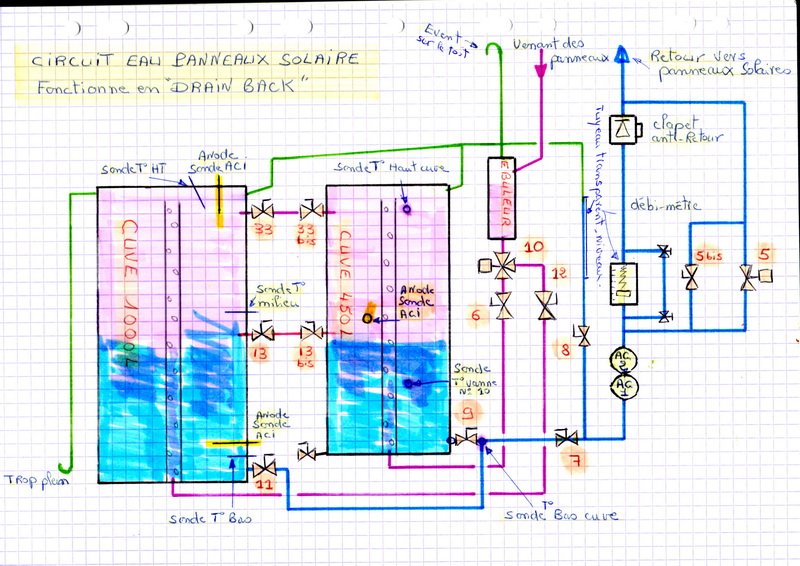 CIRCUIT EAU PANNEAUX SOLAIRE
Fonctionne en "DRAIN BACK"
Event
sur le toit
Venant des
panneaux
Retour vers
panneaux Solaires
clapet
anti-Retour
Tuyau transparent, Niveau.
débi-mètre
Sonde T° HT
Anode
Sonde ACI
Sonde T° Haut cuve
CUVE 1000L
33
33
bis
CUVE 450L
10
12
5bis
5
Sonde T°
milieu
Anode
Sonde
ACI
6
13
13
bis
8
AC
2
AC
1
Sonde
T° vanne
N° 10
Anode
Sonde
ACI
9
7
11
Trop plein
Sonde T° Bas
T°
Sonde Bas cuve